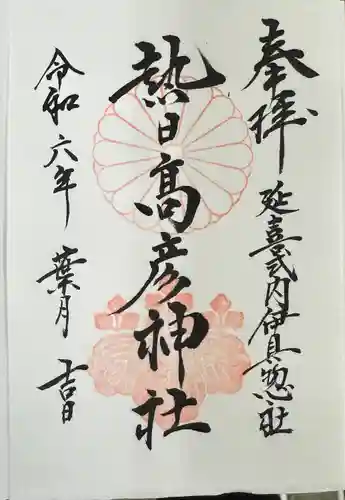 奉拝
延喜式内伊具惣社
熱日高彦神社
令和六年
葉月
吉日